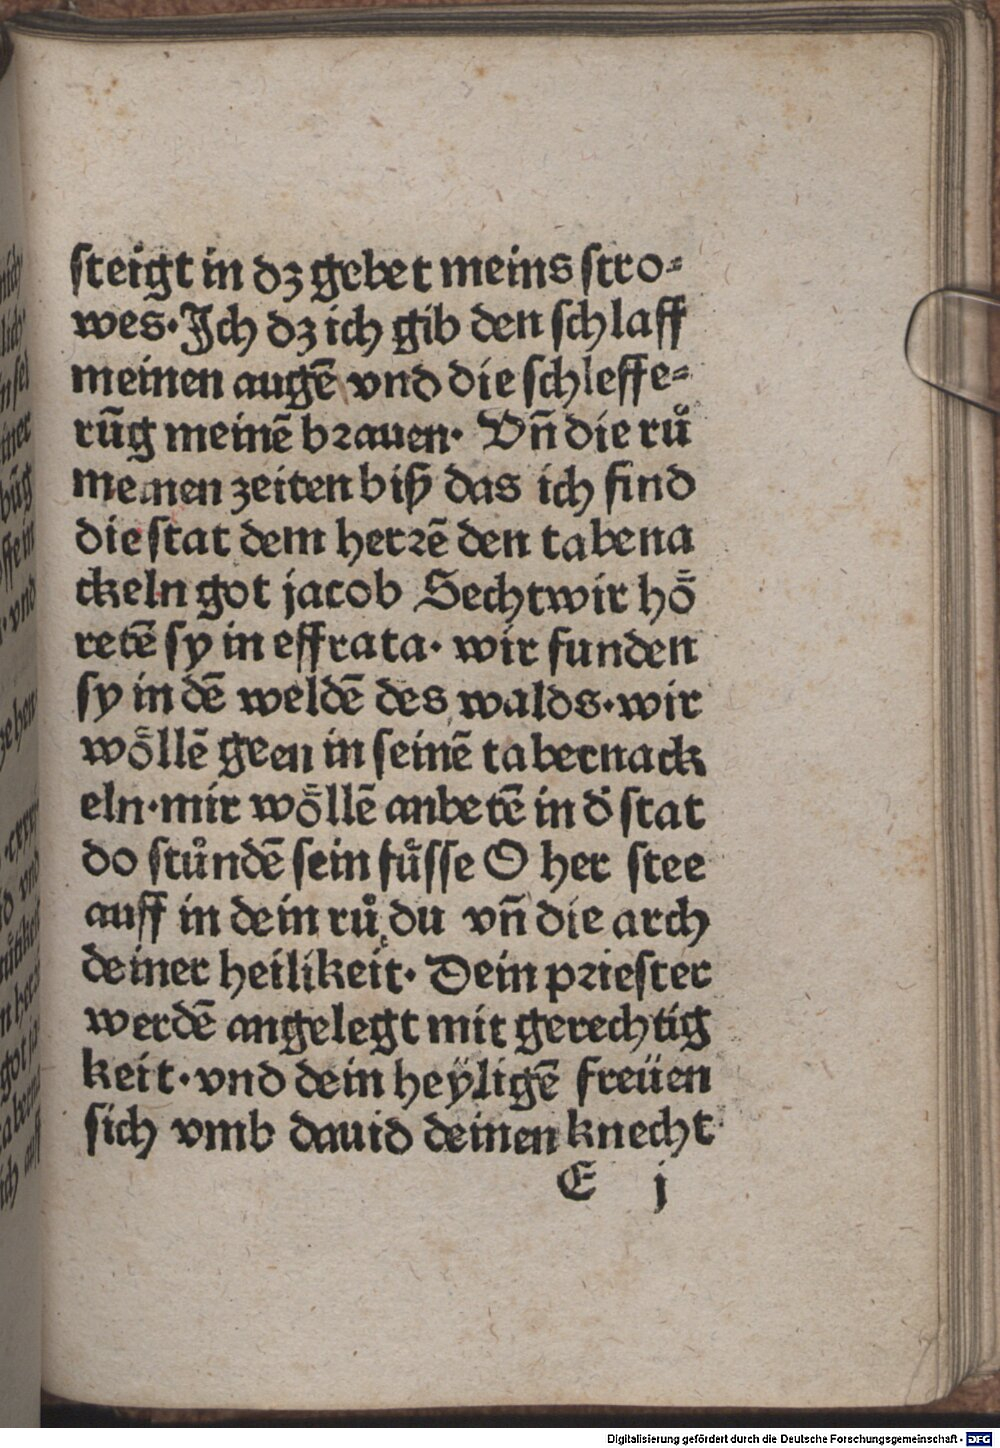 steigt in dʒ gebet meins stro⸗
wes·Ich dʒ ich gib den schlaff
meinen augē vnd die schleffe⸗
rūg meinē brauen· Vn̄ die rů
meinen zeiten biß das ich find
die stat dem herrē den tabena
ckeln got jacob Secht wir hoͤ
retē sy in effrata· wir funden
sy in dē weldē des walds·wir
woͤllē geen in seinē tabernack
eln·mir woͤllē anbetē in d̓ stat
do stůndē sein fuͤsse O her stee
auff in dein rů du vn̄ die arch
deiner heilikeit· Dein priester
werdē angelegt mit gerechtig
keit·vnd dein heÿligē freüen
sich vmb dauid deinen knecht
E j
Digitalisierung gefördert durch die Deutsche Forschungsgemeinschaft - DFG